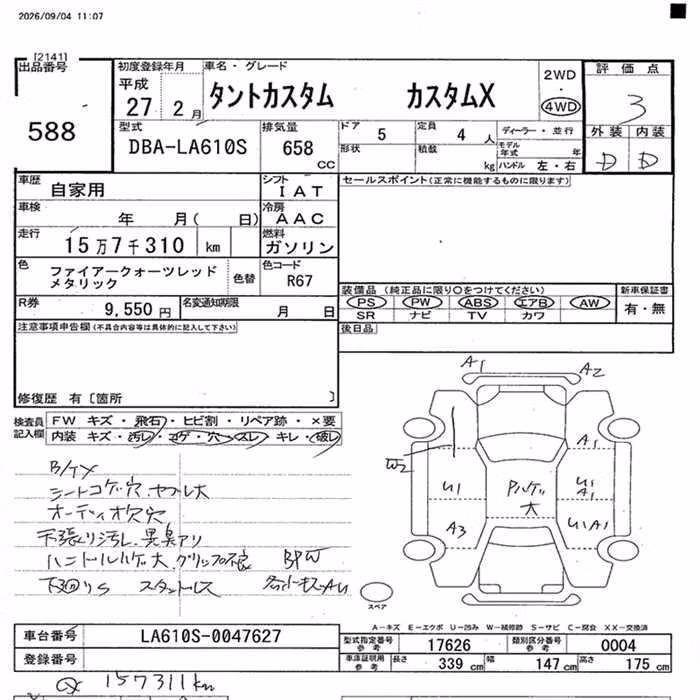 2026/09/04 11:07
[2141]
出品番号
588
初度登録年月
平成
27 2月
車名・グレード
タントカスタム カスタムX
2WD
・
4WD
評価点
3
型式
DBA-LA610S
排気量
658 cc
ドア 5
定員 4 人
ディーラー・並行
形状
積載 kg
モデル年式 年
ハンドル 左・右
外装 内装
D D
車歴
自家用
シフト
IAT
セールスポイント(正常に機能するものに限ります)
車検
年 月( 日)
冷房
AAC
走行
15万7千310 km
燃料
ガソリン
色
ファイアークォーツレッド
メタリック
色替
色コード
R67
装備品 (純正品に限り○をつけてください)
新車保証書
PS PW ABS エアB AW
有・無
SR ナビ TV カワ
R券
9,550 円
名変通知期限
月 日
後日品
注意事項申告欄(不具合内容等は具体的に記入して下さい)
修復歴 有〔箇所 〕
検査員
記入欄
FW キズ・飛石・ヒビ割・リペア跡・×要
内装 キズ・汚レ・コゲ・穴・スレ・キレ・破レ
シートコゲ穴.ヤブレ大
オーディオ欠穴
天張り汚レ.異臭アリ
ハンドルハゲ大.グリップ不良
下回りS スタントレス
A1 A2
W2
A1
U1
U1
A1
Pハゲ
大
A3
U1A1
スペア
A−キズ E−エクボ U−凹み W−補修跡 S−サビ C−腐食 XX−交換済
車台番号
LA610S-0047627
型式指定番号
参考
17626
類別区分番号
参考
0004
登録番号
車庫証明用
参考
長さ 339 cm
幅 147 cm
高さ 175 cm
157311km